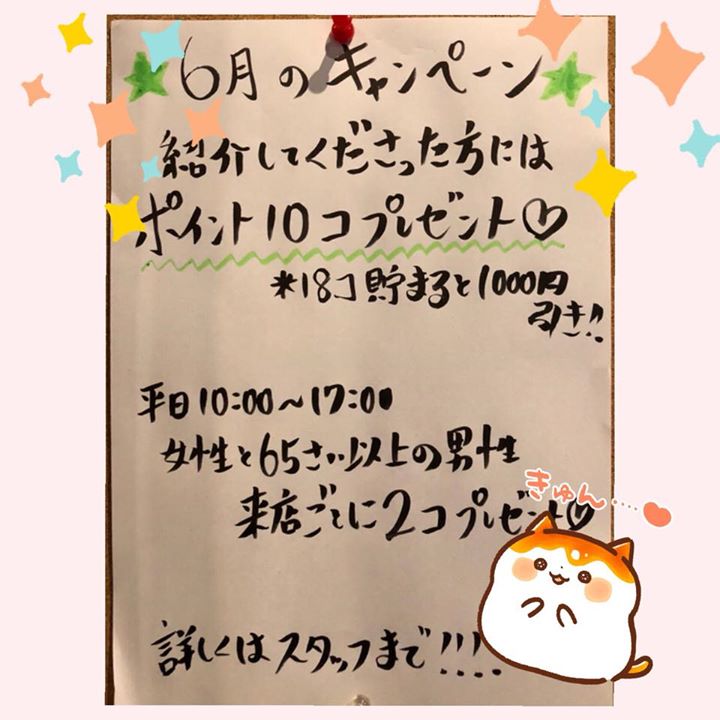 ★6月のキャンペーン★
紹介してくださった方には
ポイント10コプレゼント♡
*18コ貯まると1000円
引き!!
平日10:00〜17:00
女性と65さい以上の男性
来店ごとに2コプレゼント♡
きゅん……♥
詳しくはスタッフまで!!!!